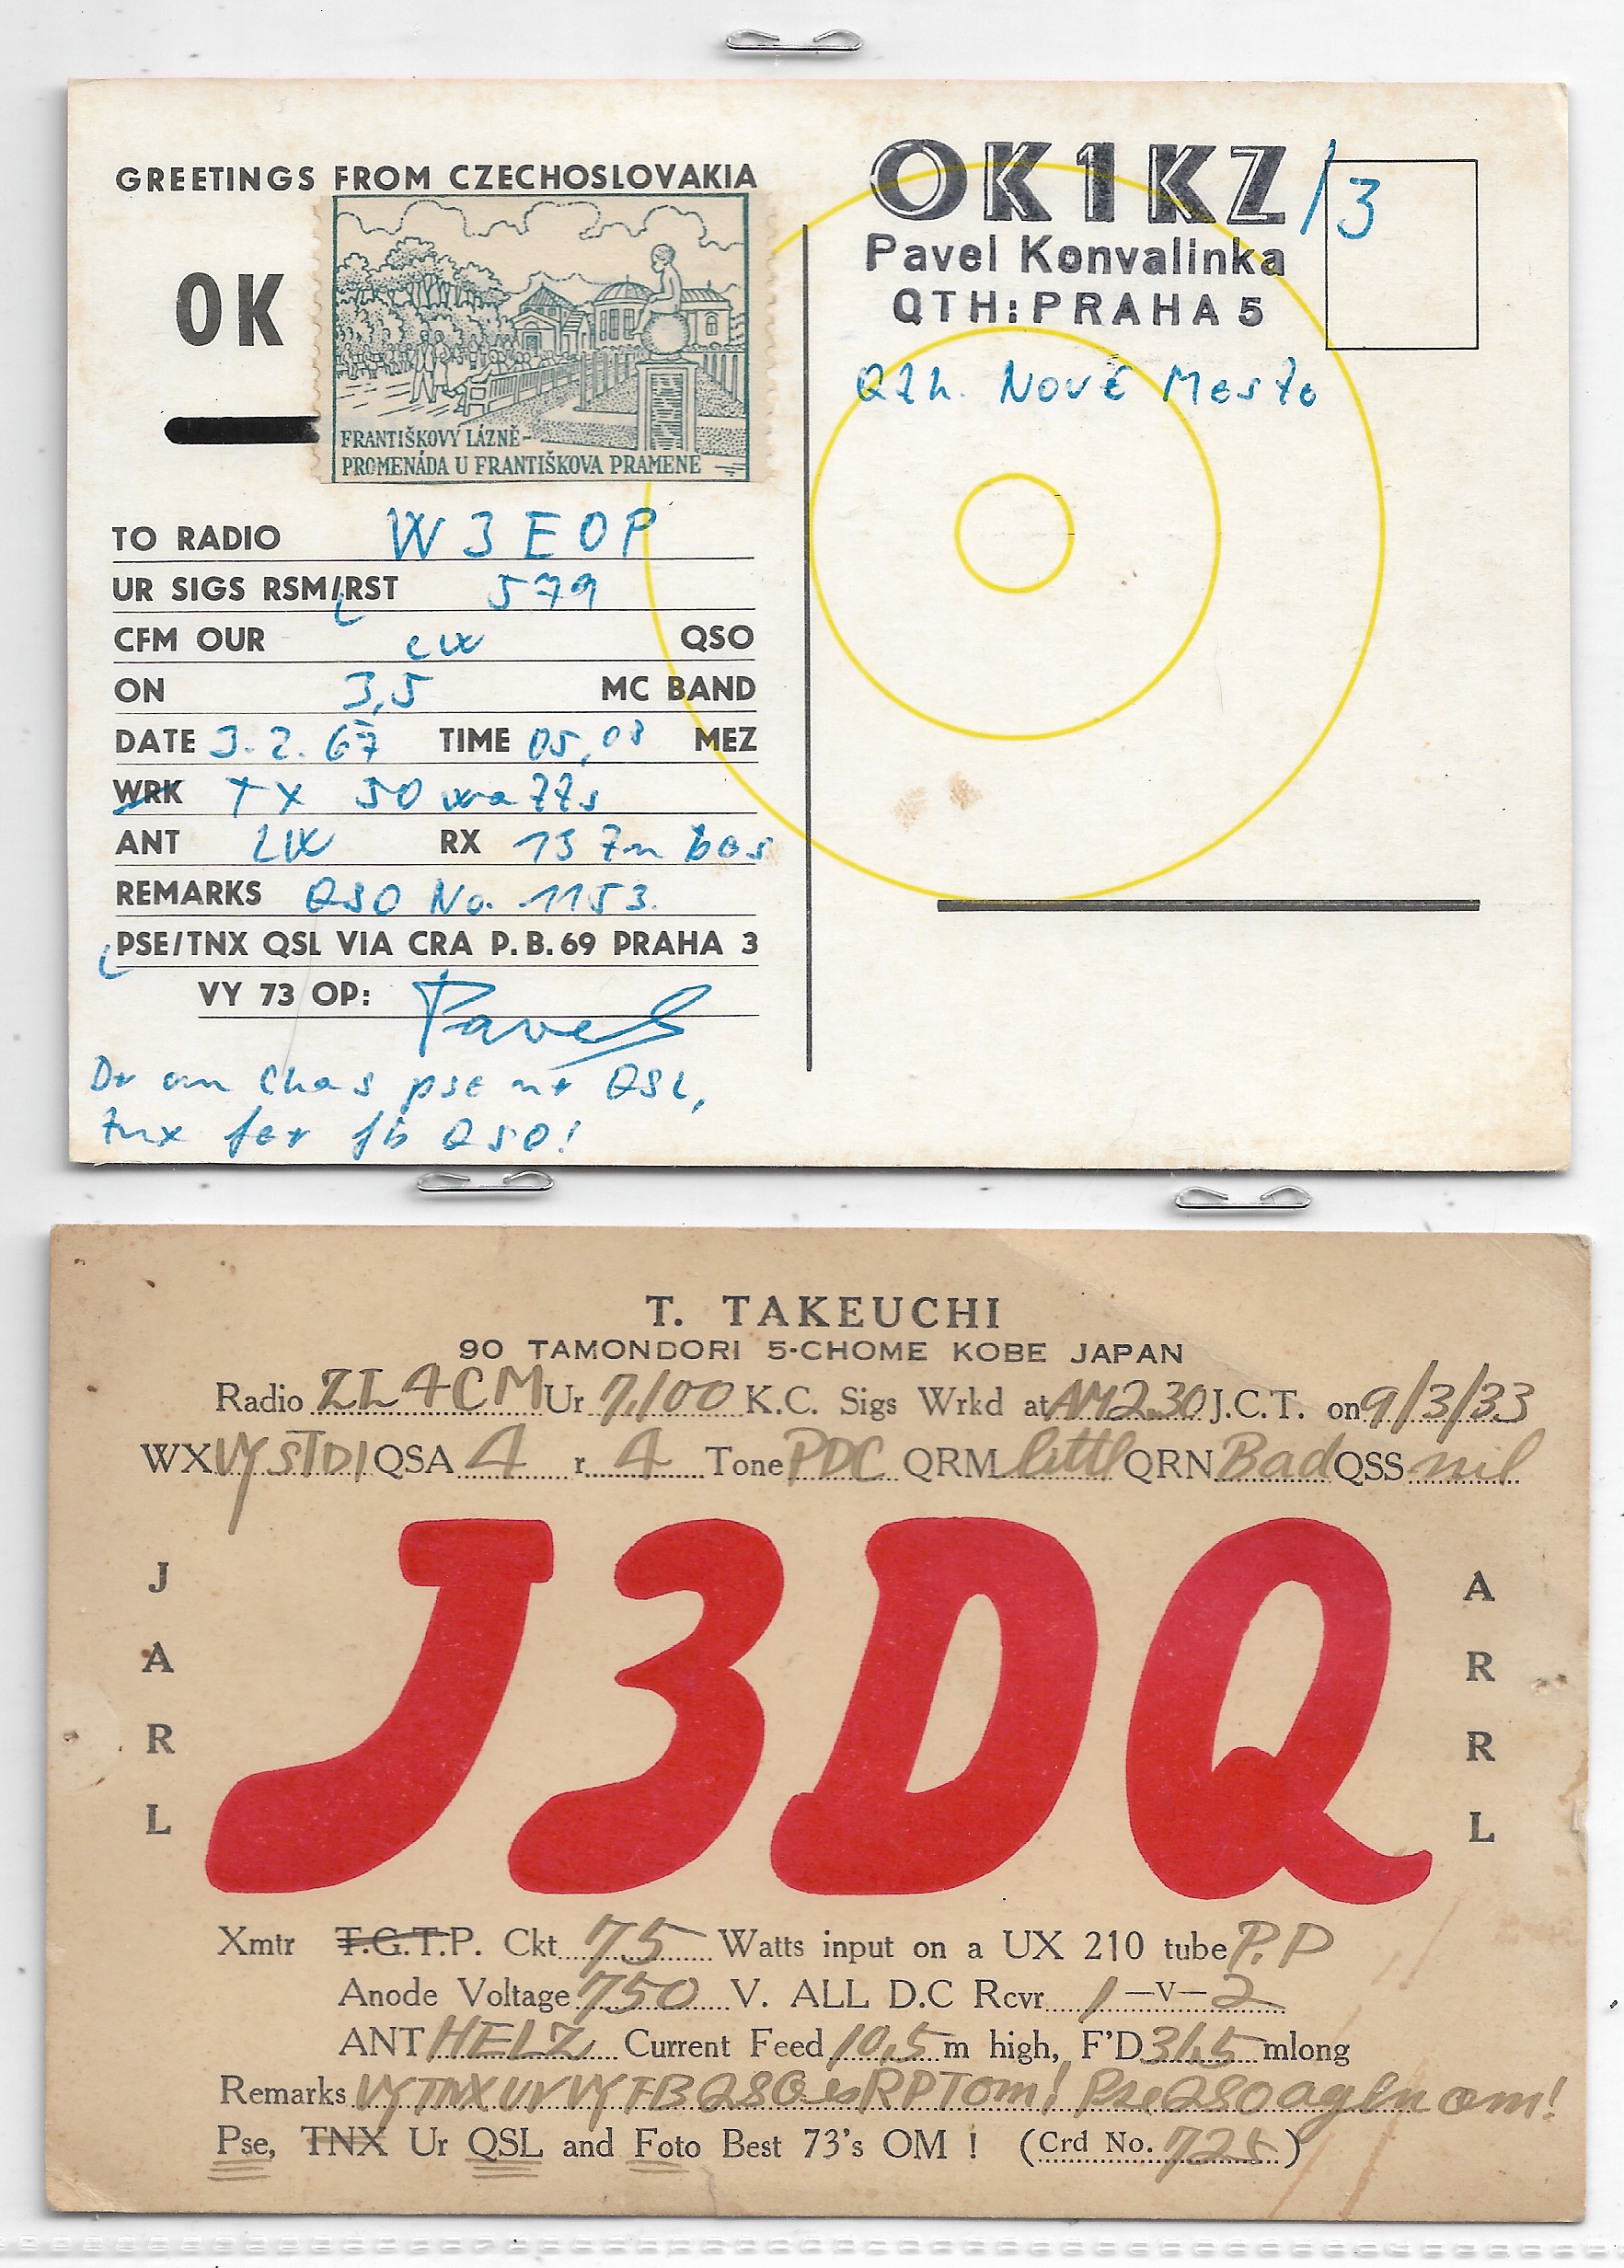 GREETINGS FROM CZECHOSLOVAKIA
OK
FRANTIŠKOVY LÁZNĚ-
PROMENÁDA U FRANTIŠKOVA PRAMENE
TO RADIO W3EOP
UR SIGS RSM/RST 579
CFM OUR cw QSO
ON 3,5 MC BAND
DATE 3.2.67 TIME 05,08 MEZ
WRK TX 50 watts
ANT LW RX 13 tubes
REMARKS QSO No. 1153.
PSE/TNX QSL VIA CRA P.B. 69 PRAHA 3
VY 73 OP: Pavel
Dr om Chas pse ur QSL,
tnx fer fb QSO!
OK1KZ/3
Pavel Konvalinka
QTH: PRAHA 5
Qth. Nové Mesto
T. TAKEUCHI
90 TAMONDORI 5-CHOME KOBE JAPAN
Radio ZL4CM Ur 7,100 K.C. Sigs Wrkd at AM2.30 J.C.T. on 9/3/33
WX VY STDI QSA 4 r 4 Tone PDC QRM littl QRN Bad QSS nil
JARL
J3DQ
ARRL
Xmtr T.G.T.P. Ckt 75 Watts input on a UX 210 tube P.P
Anode Voltage 750 V. ALL D.C Rcvr 1-V-2
ANT HELZ Current Feed 10,5 m high, F'D 31,5 mlong
Remarks VY TNX UR VY FB QSO es RPT om! Pse QSO agln om!
Pse, TNX Ur QSL and Foto Best 73's OM ! (Crd No. )